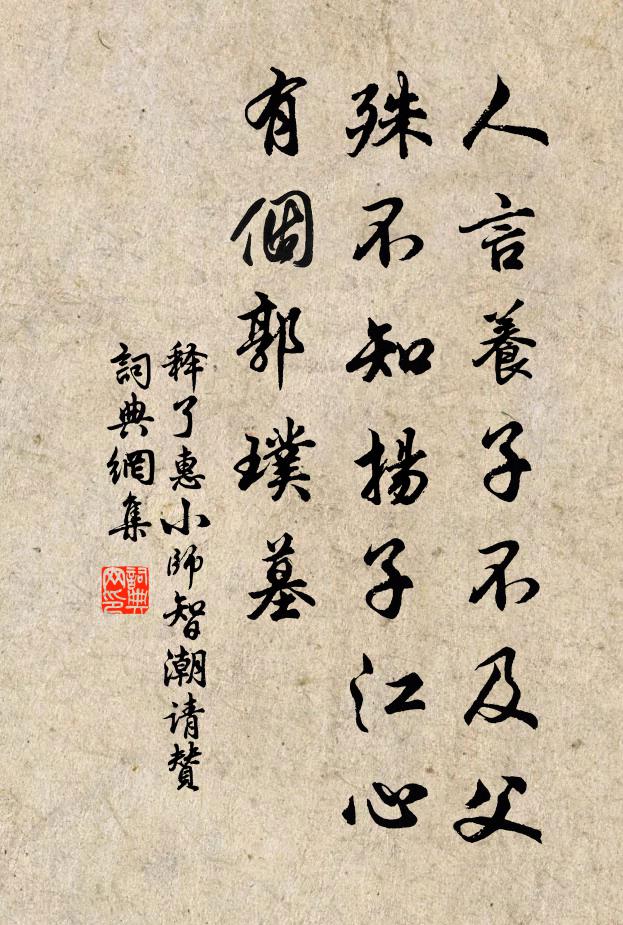 人言養子不及父
殊不知揚子江心
有個郭璞墓
释了惠小師智潮请贊
詞典網集
詞典網印